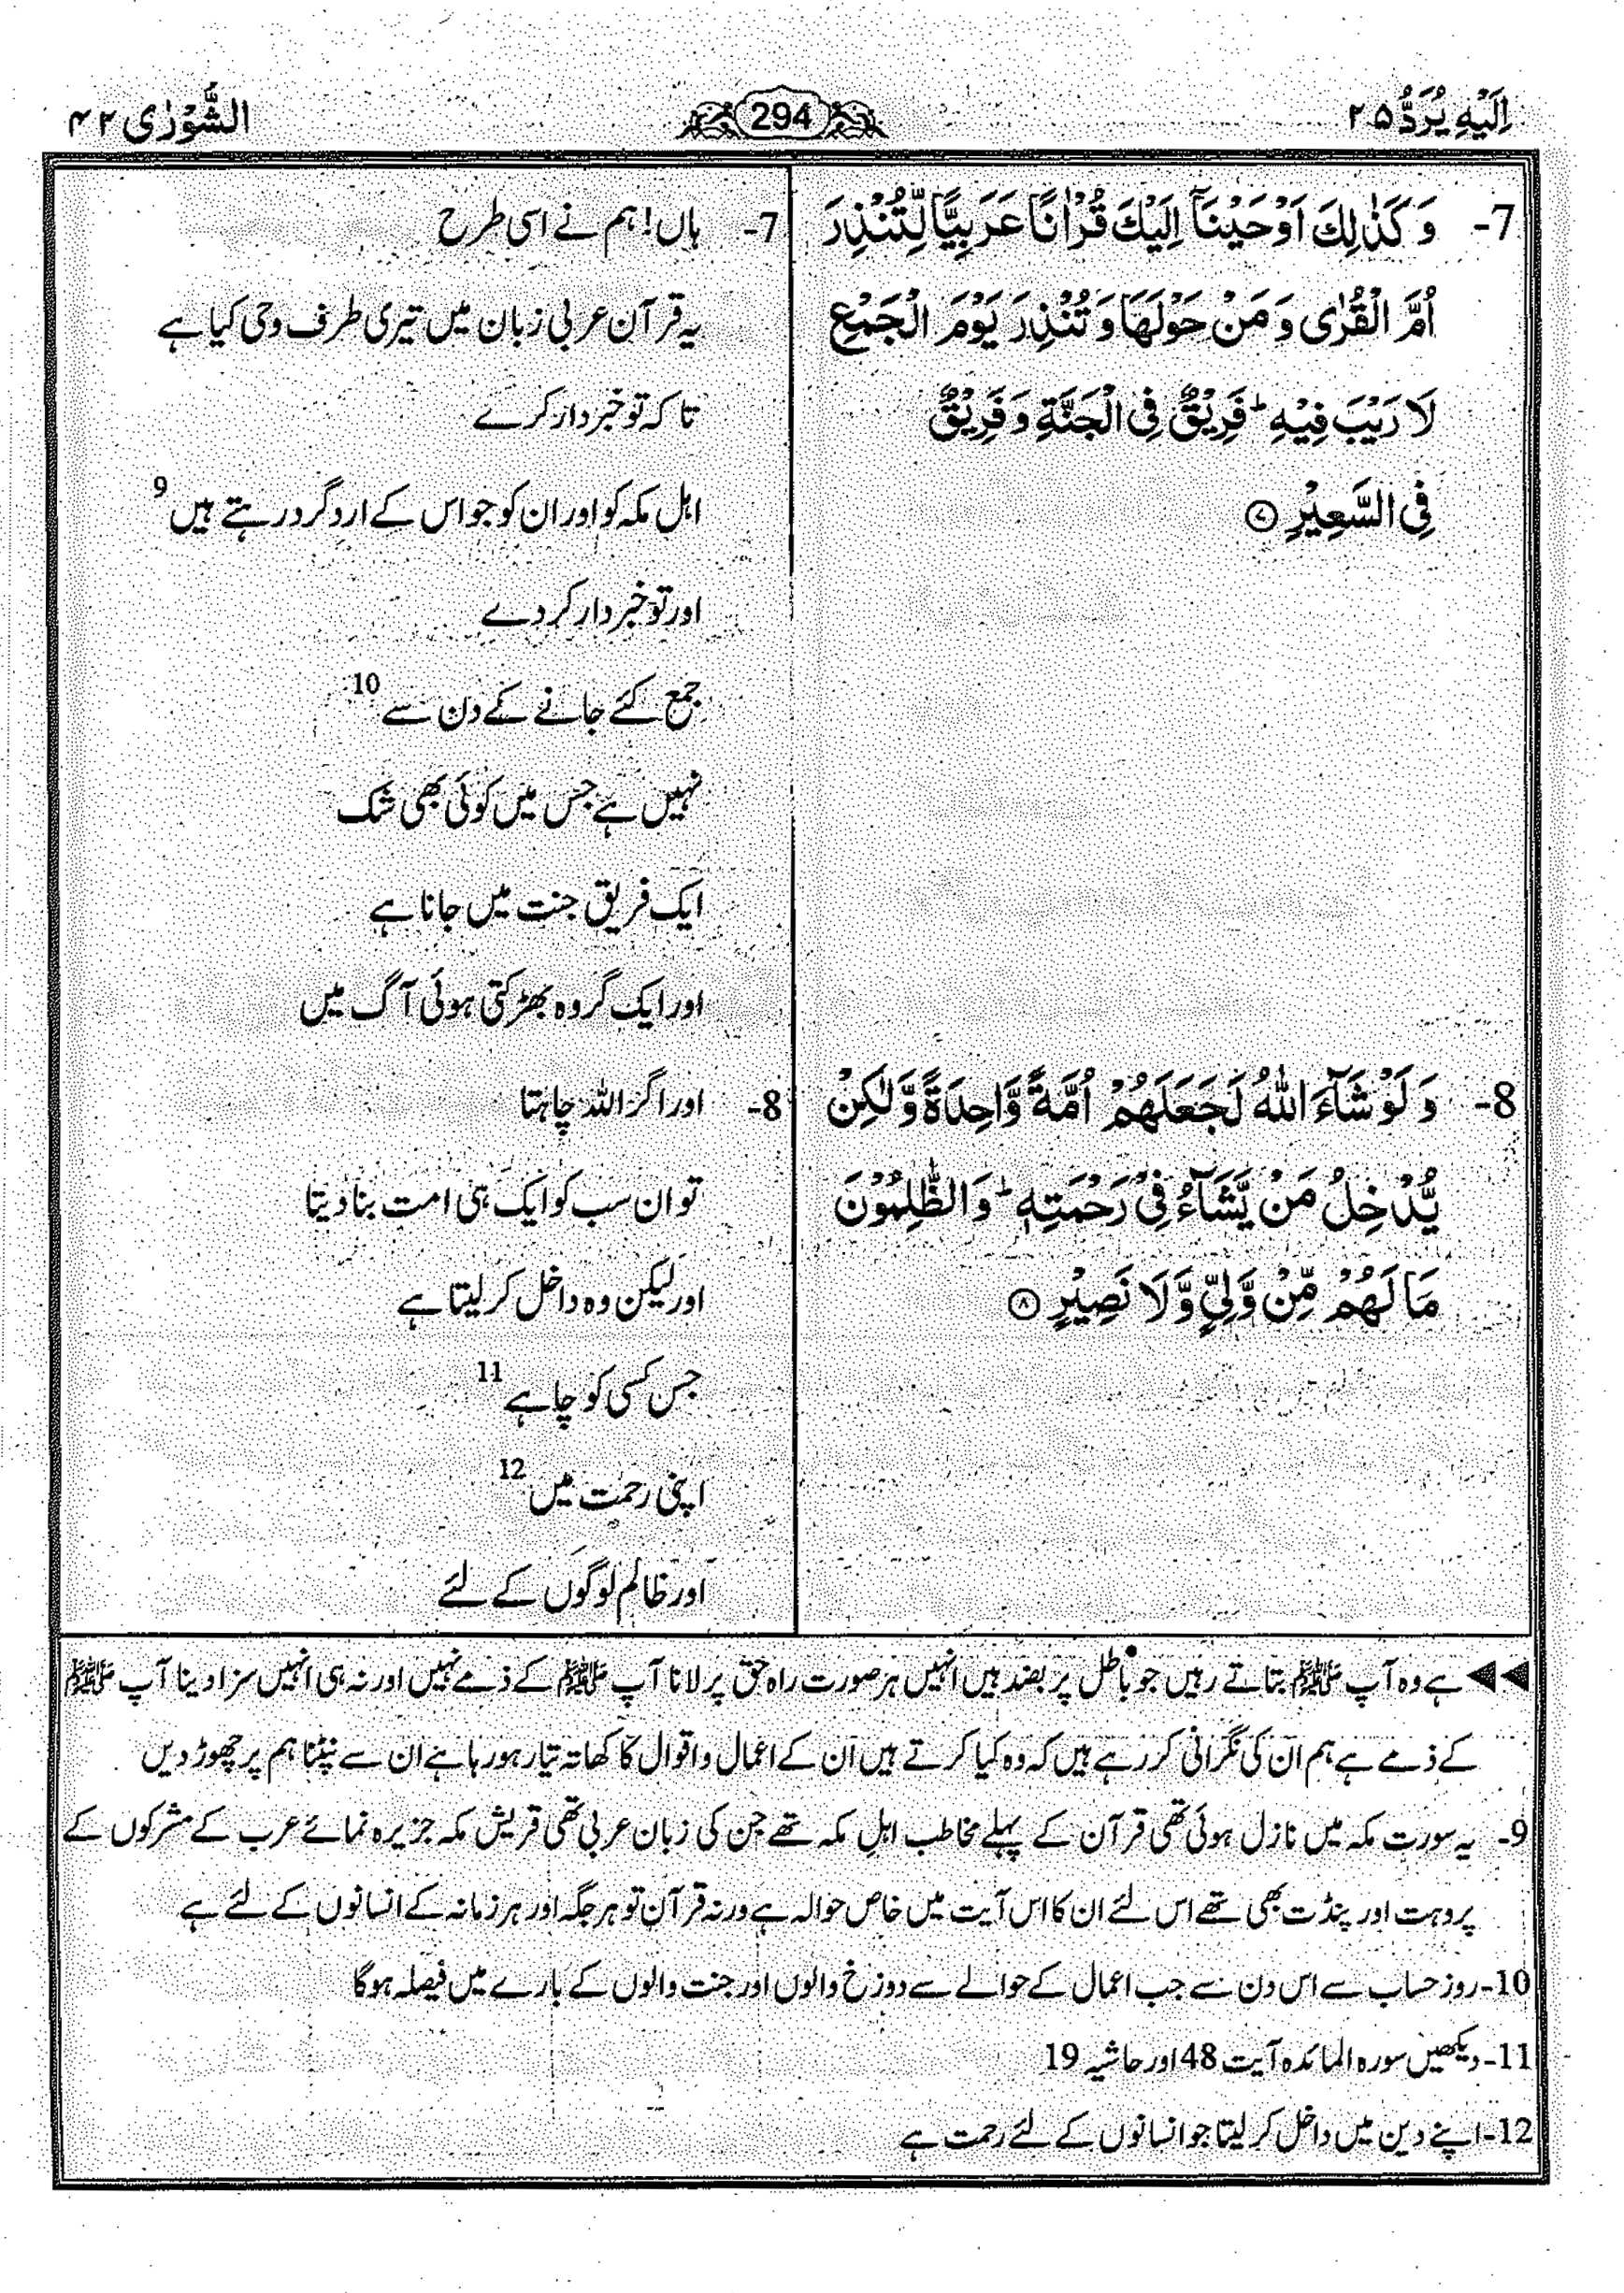 اِلَيْهِ يُرَدُّ ۲۵
294
الشُّوْرٰى ۴۲
7- وَ كَذٰلِكَ اَوْحَيْنَآ اِلَيْكَ قُرْاٰنًا عَرَبِيًّا لِّتُنْذِرَ
اُمَّ الْقُرٰى وَ مَنْ حَوْلَهَا وَ تُنْذِرَ يَوْمَ الْجَمْعِ
لَا رَيْبَ فِيْهِ ؕ فَرِيْقٌ فِي الْجَنَّةِ وَ فَرِيْقٌ
فِي السَّعِيْرِ ۷
8- وَ لَوْ شَآءَ اللّٰهُ لَجَعَلَهُمْ اُمَّةً وَّاحِدَةً وَّ لٰكِنْ
يُّدْخِلُ مَنْ يَّشَآءُ فِيْ رَحْمَتِهٖ ؕ وَ الظّٰلِمُوْنَ
مَا لَهُمْ مِّنْ وَّلِيٍّ وَّ لَا نَصِيْرٍ ۸
7- ہاں! ہم نے اسی طرح
یہ قرآن عربی زبان میں تیری طرف وحی کیا ہے
تا کہ تو خبردار کرے
اہل مکہ کو اور ان کو جو اس کے ارد گرد رہتے ہیں 9
اور تو خبردار کر دے
جمع کئے جانے کے دن سے 10
نہیں ہے جس میں کوئی بھی شک
ایک فریق جنت میں جانا ہے
اور ایک گروہ بھڑکتی ہوئی آگ میں
8- اور اگر اللہ چاہتا
تو ان سب کو ایک ہی امت بنا دیتا
اور لیکن وہ داخل کر لیتا ہے
جس کسی کو چاہے 11
اپنی رحمت میں 12
اور ظالم لوگوں کے لئے
◀◀ ہے وہ آپ ﷺ بتاتے رہیں جو باطل پر بضد ہیں انہیں ہر صورت راہ حق پر لانا آپ ﷺ کے ذمے نہیں اور نہ ہی انہیں سزا دینا آپ ﷺ
کے ذمے ہے ہم ان کی نگرانی کر رہے ہیں کہ وہ کیا کرتے ہیں ان کے اعمال و اقوال کا کھاتہ تیار ہو رہا ہے ان سے نپٹنا ہم پر چھوڑ دیں
9- یہ سورت مکہ میں نازل ہوئی تھی قرآن کے پہلے مخاطب اہلِ مکہ تھے جن کی زبان عربی تھی قریش مکہ جزیرہ نمائے عرب کے مشرکوں کے
پروہت اور پنڈت بھی تھے اس لئے ان کا اس آیت میں خاص حوالہ ہے ورنہ قرآن تو ہر جگہ اور ہر زمانہ کے انسانوں کے لئے ہے
10- روز حساب سے اس دن سے جب اعمال کے حوالے سے دوزخ والوں اور جنت والوں کے بارے میں فیصلہ ہوگا
11- دیکھیں سورہ المائدہ آیت 48 اور حاشیہ 19
12- اپنے دین میں داخل کر لیتا جو انسانوں کے لئے رحمت ہے